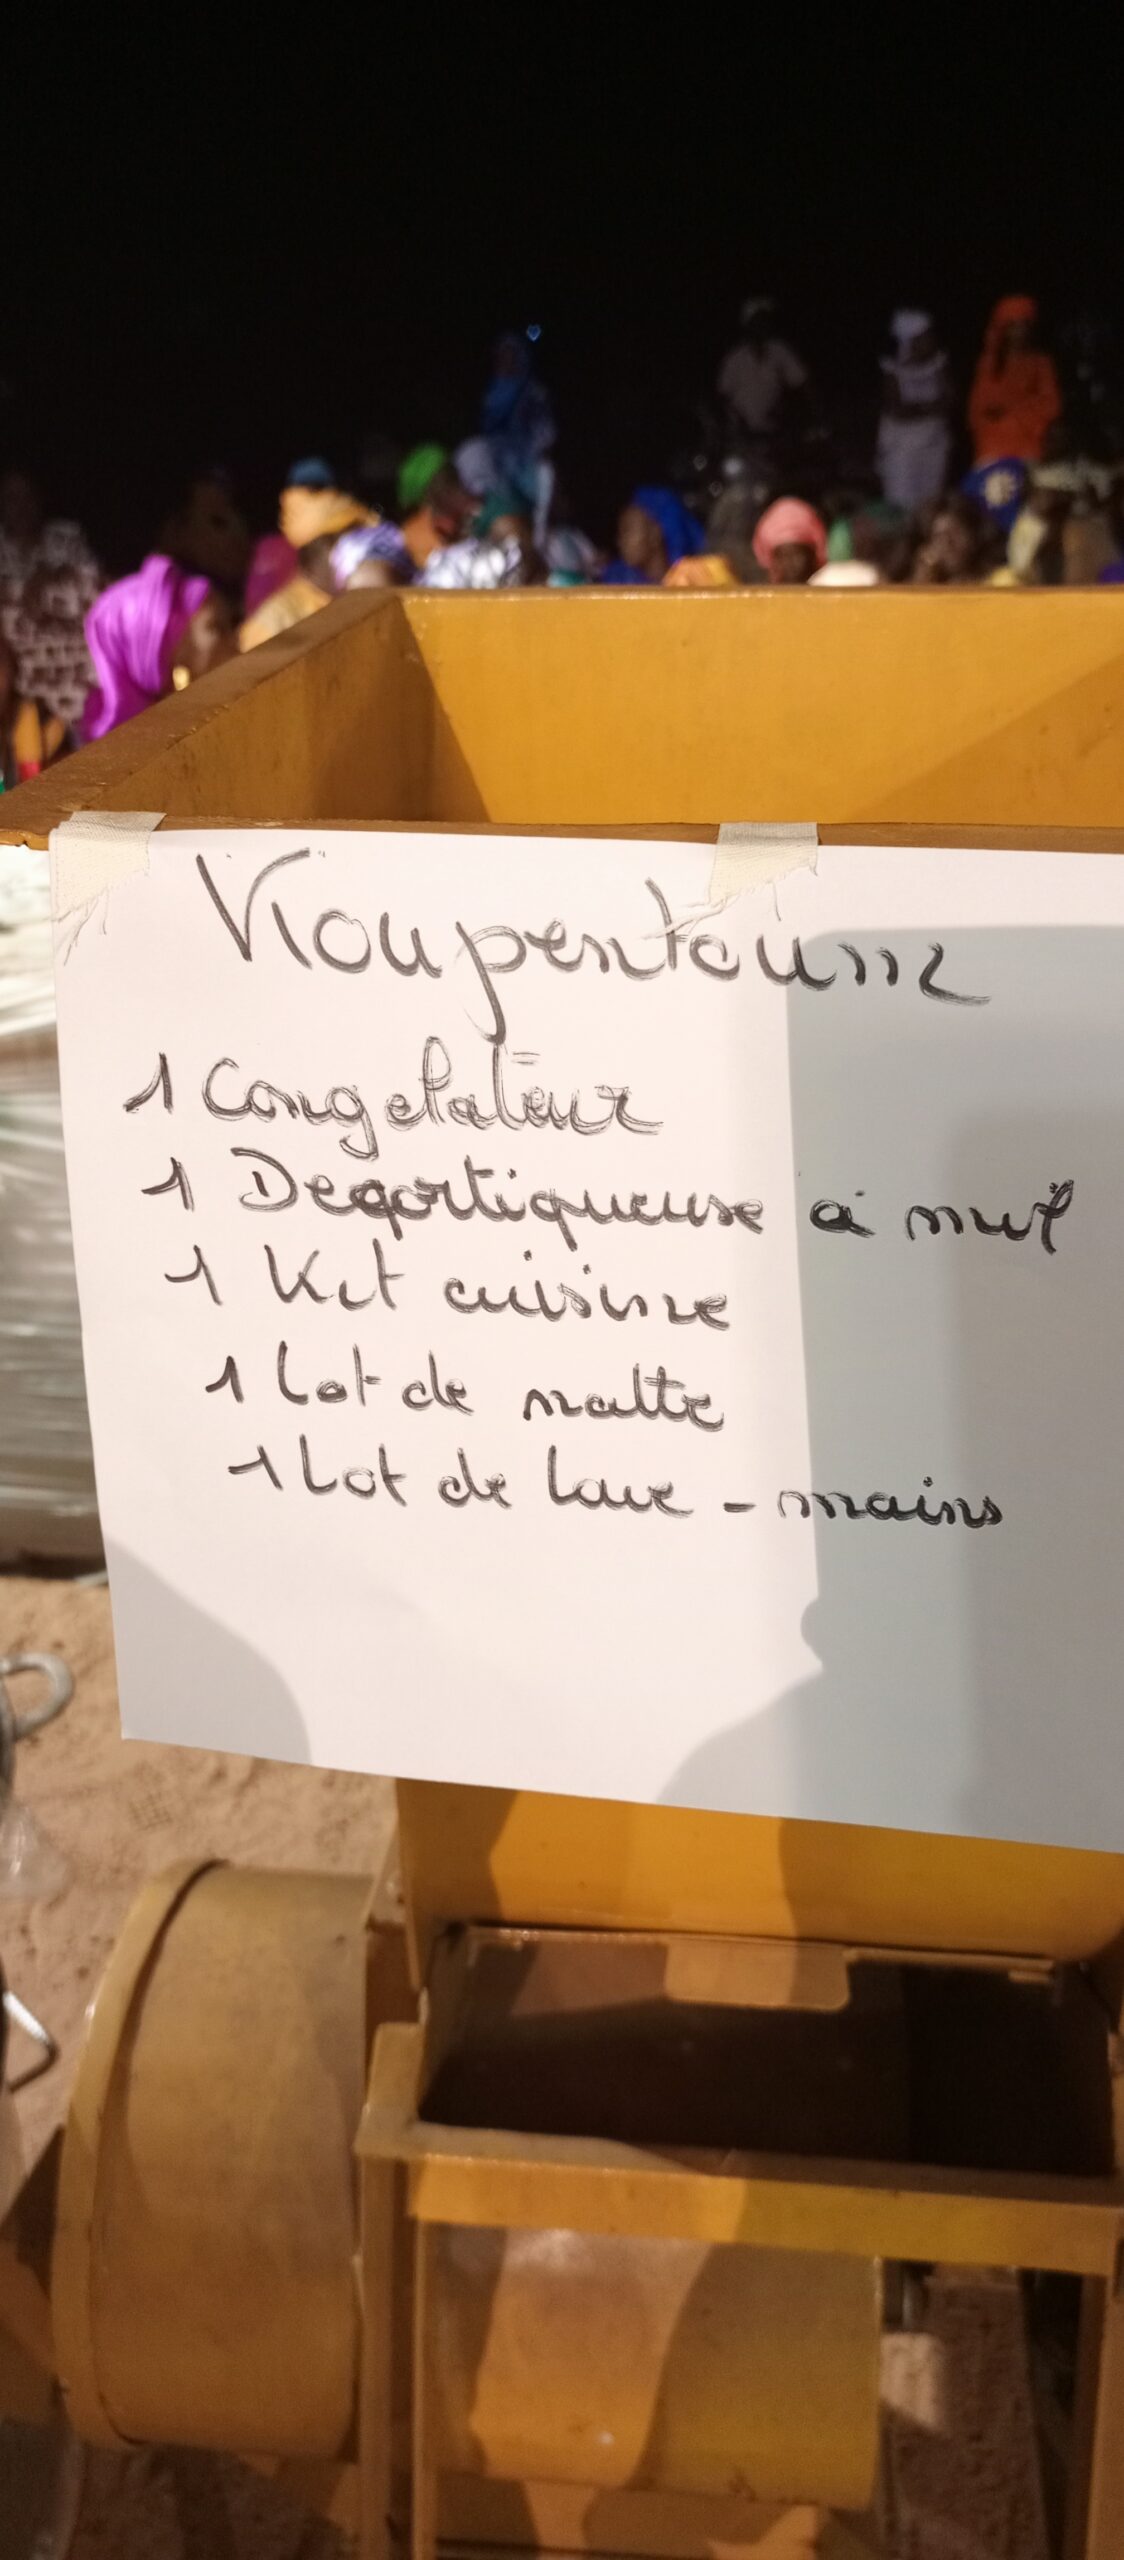 Vioupentoum
1 Congelateur
1 Decortiqueuse à mil
1 Kit cuisine
1 Lot de natte
1 Lot de lave-mains